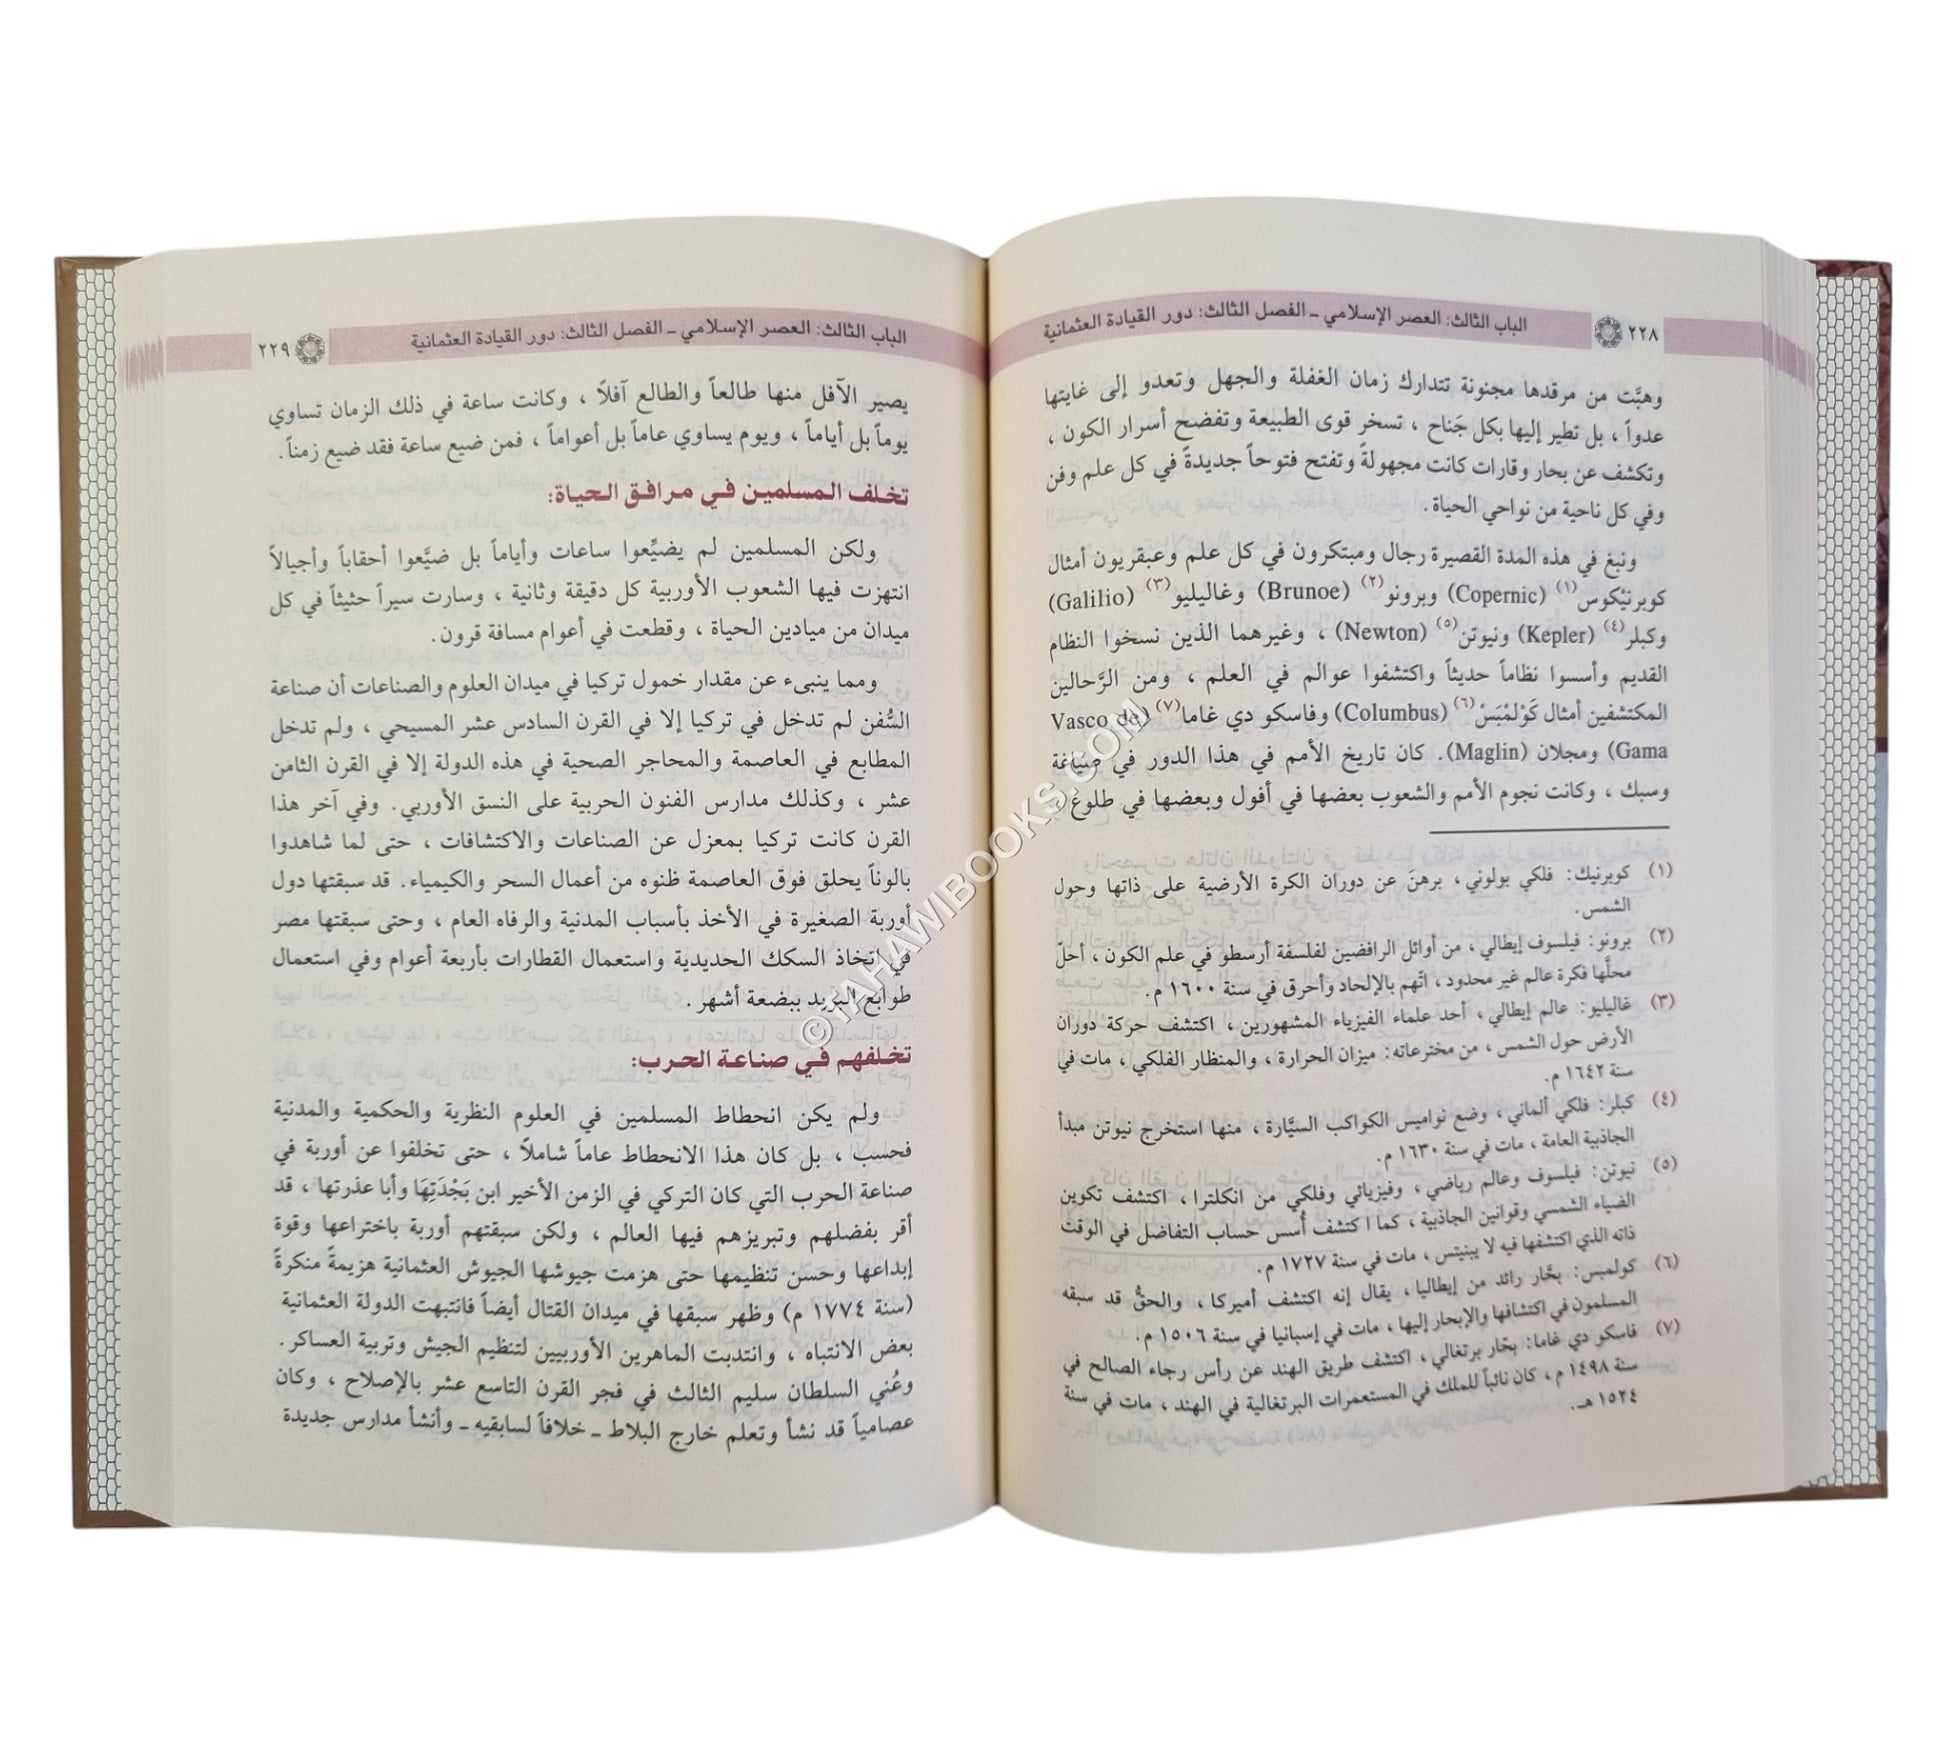 ٢٢٨ الباب الثالث: العصر الإسلامي ــ الفصل الثالث: دور القيادة العثمانية
وهبَّت من مرقدها مجنونة تتدارك زمان الغفلة والجهل وتعدو إلى غايتها
عدواً ، بل تطير إليها بكل جَناح ، تسخر قوى الطبيعة وتفضح أسرار الكون ،
وتكشف عن بحار وقارات كانت مجهولةً وتفتح فتوحاً جديدةً في كل علم وفن
وفي كل ناحية من نواحي الحياة .
ونبغ في هذه المدة القصيرة رجال ومبتكرون في كل علم وعبقريون أمثال
كوبرنيْكوس(١) (Copernic) وبرونو(٢) (Brunoe) وغاليليو(٣) (Galilio)
وكبلر(٤) (Kepler) ونيوتن(٥) (Newton) ، وغيرهما الذين نسخوا النظام
القديم وأسسوا نظاماً حديثاً واكتشفوا عوالم في العلم ، ومن الرَّحالين
المكتشفين أمثال كَوْلمْبَسْ(٦) (Columbus) وفاسكو دي غاما(٧) (Vasco de
Gama) ومجلان (Maglin). كان تاريخ الأمم في هذا الدور في صياغة
وسبك ، وكانت نجوم الأمم والشعوب بعضها في أفول وبعضها في طلوع ،
(١) كوبرنيك: فلكي بولوني، برهنَ عن دوران الكرة الأرضية على ذاتها وحول
الشمس.
(٢) برونو: فيلسوف إيطالي ، من أوائل الرافضين لفلسفة أرسطو في علم الكون ، أحلّ
محلَّها فكرة عالم غير محدود ، اتّهم بالإلحاد وأحرق في سنة ١٦٠٠ م.
(٣) غاليليو: عالم إيطالي، أحد علماء الفيزياء المشهورين ، اكتشف حركة دوران
الأرض حول الشمس ، من مخترعاته: ميزان الحرارة ، والمنظار الفلكي ، مات في
سنة ١٦٤٢ م.
(٤) كبلر: فلكي ألماني ، وضع نواميس الكواكب السيَّارة ، منها استخرج نيوتن مبدأ
الجاذبية العامة ، مات في سنة ١٦٣٠ م.
(٥) نيوتن: فيلسوف وعالم رياضي ، وفيزيائي وفلكي من انكلترا ، اكتشف تكوين
الضياء الشمسي وقوانين الجاذبية ، كما اكتشف أُسس حساب التفاضل في الوقت
ذاته الذي اكتشفها فيه لا يبنيتس ، مات في سنة ١٧٢٧ م.
(٦) كولمبس: بحَّار رائد من إيطاليا ، يقال إنه اكتشف أميركا ، والحقُّ قد سبقه
المسلمون في اكتشافها والإبحار إليها ، مات في إسبانيا في سنة ١٥٠٦ م.
(٧) فاسكو دي غاما: بحّار برتغالي ، اكتشف طريق الهند عن رأس رجاء الصالح في
سنة ١٤٩٨ م ، كان نائباً للملك في المستعمرات البرتغالية في الهند ، مات في سنة
١٥٢٤ هـ.
الباب الثالث: العصر الإسلامي ــ الفصل الثالث: دور القيادة العثمانية ٢٢٩
يصير الآفل منها طالعاً والطالع آفلاً ، وكانت ساعة في ذلك الزمان تساوي
يوماً بل أياماً ، ويوم يساوي عاماً بل أعواماً ، فمن ضيع ساعة فقد ضيع زمناً .
تخلف المسلمين في مرافق الحياة:
ولكن المسلمين لم يضيِّعوا ساعات وأياماً بل ضيَّعوا أحقاباً وأجيالاً
انتهزت فيها الشعوب الأوربية كل دقيقة وثانية ، وسارت سيراً حثيثاً في كل
ميدان من ميادين الحياة ، وقطعت في أعوام مسافة قرون .
ومما ينبىء عن مقدار خمول تركيا في ميدان العلوم والصناعات أن صناعة
السُّفن لم تدخل في تركيا إلا في القرن السادس عشر المسيحي ، ولم تدخل
المطابع في العاصمة والمحاجر الصحية في هذه الدولة إلا في القرن الثامن
عشر ، وكذلك مدارس الفنون الحربية على النسق الأوربي. وفي آخر هذا
القرن كانت تركيا بمعزل عن الصناعات والاكتشافات ، حتى لما شاهدوا
بالوناً يحلق فوق العاصمة ظنوه من أعمال السحر والكيمياء. قد سبقتها دول
أوربة الصغيرة في الأخذ بأسباب المدنية والرفاه العام ، وحتى سبقتها مصر
في اتخاذ السكك الحديدية واستعمال القطارات بأربعة أعوام وفي استعمال
طوابع البريد ببضعة أشهر .
تخلفهم في صناعة الحرب:
ولم يكن انحطاط المسلمين في العلوم النظرية والحكمية والمدنية
فحسب ، بل كان هذا الانحطاط عاماً شاملاً ، حتى تخلفوا عن أوربة في
صناعة الحرب التي كان التركي في الزمن الأخير ابن بَجْدَتِهَا وأبا عذرتها ، قد
أقر بفضلهم وتبريزهم فيها العالم ، ولكن سبقتهم أوربة باختراعها وقوة
إبداعها وحسن تنظيمها حتى هزمت جيوشها الجيوش العثمانية هزيمةً منكرةً
(سنة ١٧٧٤ م) وظهر سبقها في ميدان القتال أيضاً فانتبهت الدولة العثمانية
بعض الانتباه ، وانتدبت الماهرين الأوربيين لتنظيم الجيش وتربية العساكر.
وعُني السلطان سليم الثالث في فجر القرن التاسع عشر بالإصلاح ، وكان
عصامياً قد نشأ وتعلم خارج البلاط ــ خلافاً لسابقيه ــ وأنشأ مدارس جديدة
©TAHAWIBOOKS.COM